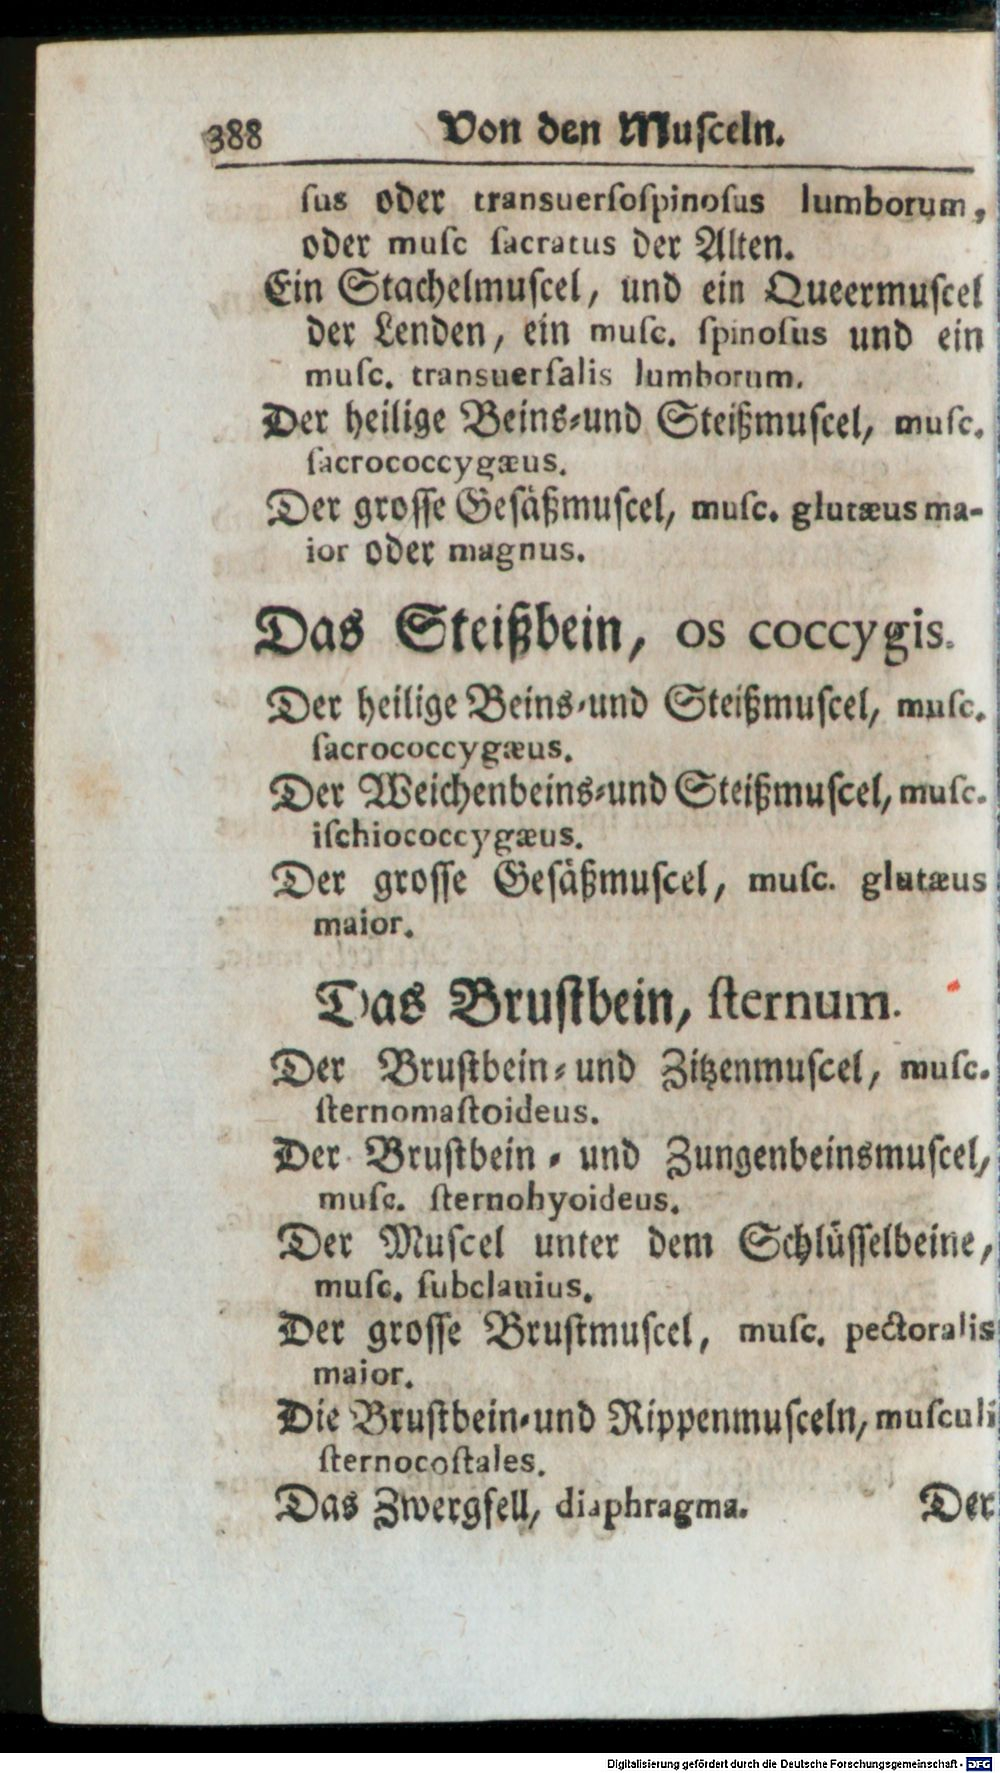 388 Von den Muſceln.
ſus oder transuerſoſpinoſus lumborum,
oder muſc ſacratus der Alten.
Ein Stachelmuſcel, und ein Queermuſcel
der Lenden, ein muſc. ſpinoſus und ein
muſc. transuerſalis lumborum.
Der heilige Beins-und Steißmuſcel, muſc.
ſacrococcygæus.
Der groſſe Geſäßmuſcel, muſc. glutæus ma-
ior oder magnus.
Das Steißbein, os coccygis.
Der heilige Beins-und Steißmuſcel, muſc.
ſacrococcygæus.
Der Weichenbeins-und Steißmuſcel, muſc.
iſchiococcygæus.
Der groſſe Geſäßmuſcel, muſc. glutæus
maior.
Das Bruſtbein, ſternum.
Der Bruſtbein-und Zitzenmuſcel, muſc.
ſternomaſtoideus.
Der Bruſtbein - und Zungenbeinsmuſcel,
muſc. ſternohyoideus.
Der Muſcel unter dem Schlüſſelbeine,
muſc. ſubclauius.
Der groſſe Bruſtmuſcel, muſc. pectoralis
maior.
Die Bruſtbein-und Rippenmuſceln, muſculi
ſternocoſtales.
Das Zwergfell, diaphragma. Der
Digitalisierung gefördert durch die Deutsche Forschungsgemeinschaft - DFG